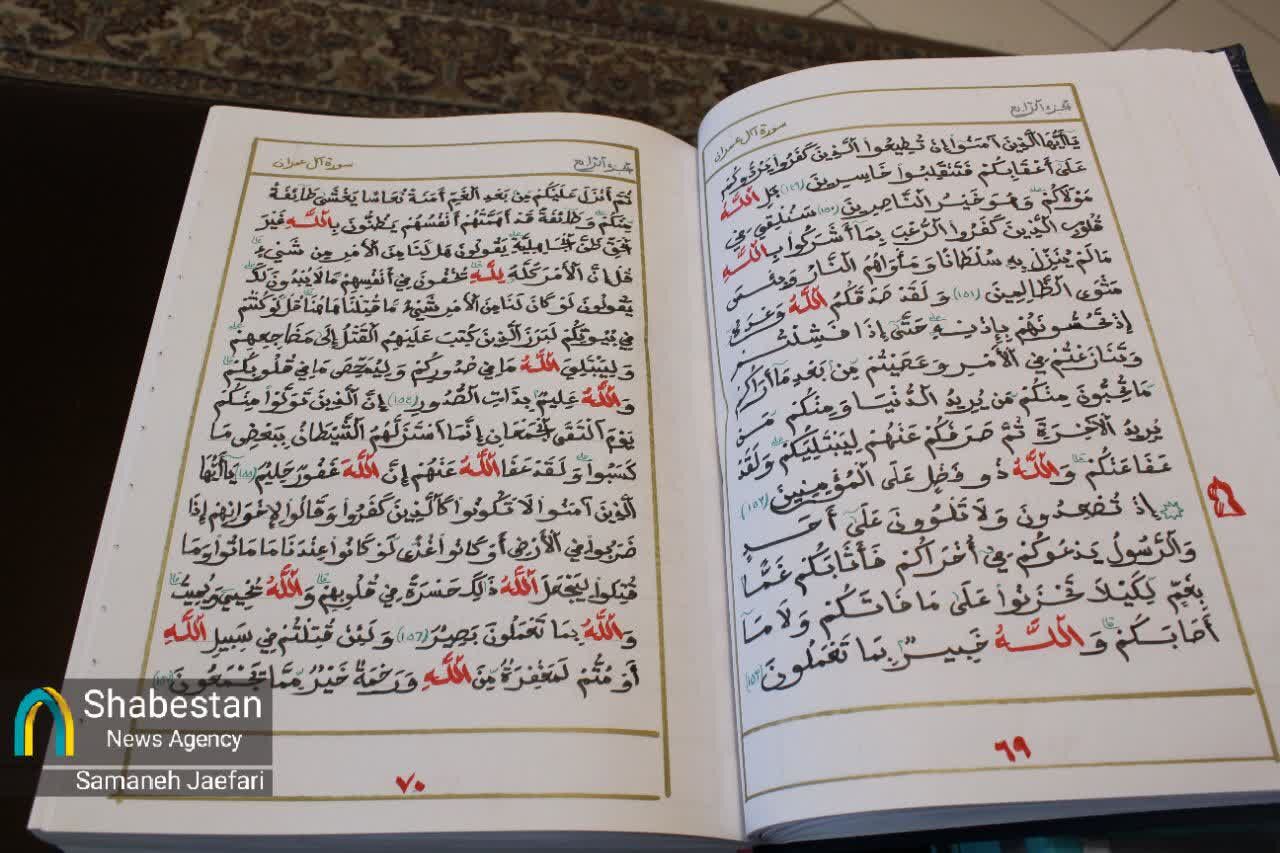 الجزء الرابع
سورة آل عمران
يَا أَيُّهَا الَّذِينَ آمَنُوا إِنْ تُطِيعُوا الَّذِينَ كَفَرُوا يَرُدُّوكُمْ
عَلَىٰ أَعْقَابِكُمْ فَتَنْقَلِبُوا خَاسِرِينَ (١٤٩) بَلِ اللَّهُ
مَوْلَاكُمْ وَهُوَ خَيْرُ النَّاصِرِينَ (١٥٠) سَنُلْقِي فِي
قُلُوبِ الَّذِينَ كَفَرُوا الرُّعْبَ بِمَا أَشْرَكُوا بِاللَّهِ
مَا لَمْ يُنَزِّلْ بِهِ سُلْطَانًا وَمَأْوَاهُمُ النَّارُ وَبِئْسَ
مَثْوَى الظَّالِمِينَ (١٥١) وَلَقَدْ صَدَقَكُمُ اللَّهُ وَعْدَهُ
إِذْ تَحُسُّونَهُمْ بِإِذْنِهِ حَتَّىٰ إِذَا فَشِلْتُمْ
وَتَنَازَعْتُمْ فِي الْأَمْرِ وَعَصَيْتُمْ مِنْ بَعْدِ مَا أَرَاكُمْ
مَا تُحِبُّونَ مِنْكُمْ مَنْ يُرِيدُ الدُّنْيَا وَمِنْكُمْ مَنْ
يُرِيدُ الْآخِرَةَ ثُمَّ صَرَفَكُمْ عَنْهُمْ لِيَبْتَلِيَكُمْ وَلَقَدْ
عَفَا عَنْكُمْ وَاللَّهُ ذُو فَضْلٍ عَلَى الْمُؤْمِنِينَ (١٥٢)
إِذْ تُصْعِدُونَ وَلَا تَلْوُونَ عَلَىٰ أَحَدٍ
وَالرَّسُولُ يَدْعُوكُمْ فِي أُخْرَاكُمْ فَأَثَابَكُمْ غَمًّا
بِغَمٍّ لِكَيْلَا تَحْزَنُوا عَلَىٰ مَا فَاتَكُمْ وَلَا مَا
أَصَابَكُمْ وَاللَّهُ خَبِيرٌ بِمَا تَعْمَلُونَ (١٥٣)
٦٩
الجزء الرابع
سورة آل عمران
ثُمَّ أَنْزَلَ عَلَيْكُمْ مِنْ بَعْدِ الْغَمِّ أَمَنَةً نُعَاسًا يَغْشَىٰ طَائِفَةً
مِنْكُمْ وَطَائِفَةٌ قَدْ أَهَمَّتْهُمْ أَنْفُسُهُمْ يَظُنُّونَ بِاللَّهِ غَيْرَ
الْحَقِّ ظَنَّ الْجَاهِلِيَّةِ يَقُولُونَ هَلْ لَنَا مِنَ الْأَمْرِ مِنْ شَيْءٍ
قُلْ إِنَّ الْأَمْرَ كُلَّهُ لِلَّهِ يُخْفُونَ فِي أَنْفُسِهِمْ مَا لَا يُبْدُونَ لَكَ
يَقُولُونَ لَوْ كَانَ لَنَا مِنَ الْأَمْرِ شَيْءٌ مَا قُتِلْنَا هَاهُنَا قُلْ لَوْ كُنْتُمْ
فِي بُيُوتِكُمْ لَبَرَزَ الَّذِينَ كُتِبَ عَلَيْهِمُ الْقَتْلُ إِلَىٰ مَضَاجِعِهِمْ
وَلِيَبْتَلِيَ اللَّهُ مَا فِي صُدُورِكُمْ وَلِيُمَحِّصَ مَا فِي قُلُوبِكُمْ
وَاللَّهُ عَلِيمٌ بِذَاتِ الصُّدُورِ (١٥٤) إِنَّ الَّذِينَ تَوَلَّوْا مِنْكُمْ
يَوْمَ الْتَقَى الْجَمْعَانِ إِنَّمَا اسْتَزَلَّهُمُ الشَّيْطَانُ بِبَعْضِ مَا
كَسَبُوا وَلَقَدْ عَفَا اللَّهُ عَنْهُمْ إِنَّ اللَّهَ غَفُورٌ حَلِيمٌ (١٥٥) يَا أَيُّهَا
الَّذِينَ آمَنُوا لَا تَكُونُوا كَالَّذِينَ كَفَرُوا وَقَالُوا لِإِخْوَانِهِمْ إِذَا
ضَرَبُوا فِي الْأَرْضِ أَوْ كَانُوا غُزًّى لَوْ كَانُوا عِنْدَنَا مَا مَاتُوا وَمَا
قُتِلُوا لِيَجْعَلَ اللَّهُ ذَٰلِكَ حَسْرَةً فِي قُلُوبِهِمْ وَاللَّهُ يُحْيِي وَيُمِيتُ
وَاللَّهُ بِمَا تَعْمَلُونَ بَصِيرٌ (١٥٦) وَلَئِنْ قُتِلْتُمْ فِي سَبِيلِ اللَّهِ
أَوْ مُتُّمْ لَمَغْفِرَةٌ مِنَ اللَّهِ وَرَحْمَةٌ خَيْرٌ مِمَّا يَجْمَعُونَ (١٥٧)
٧٠
Shabestan
News Agency
Samaneh Jaefari